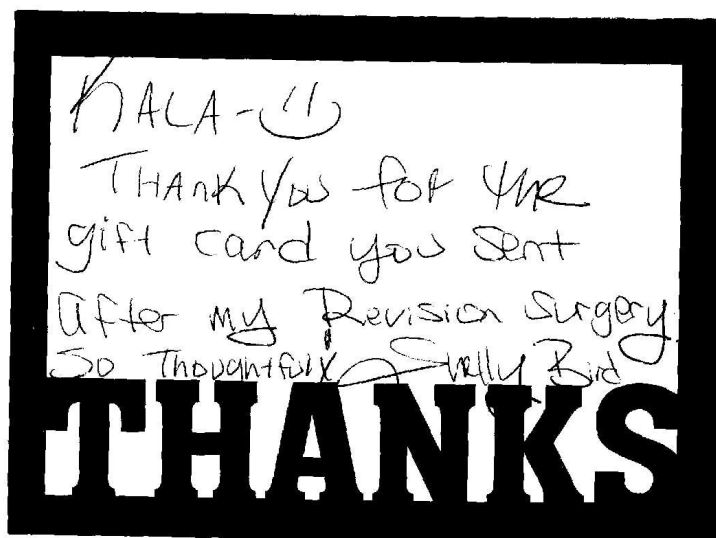 KALA-
THAnk You for the
gift card you sent
after my Revision Surgery
So Thoughtful Shelly Bird
THANKS